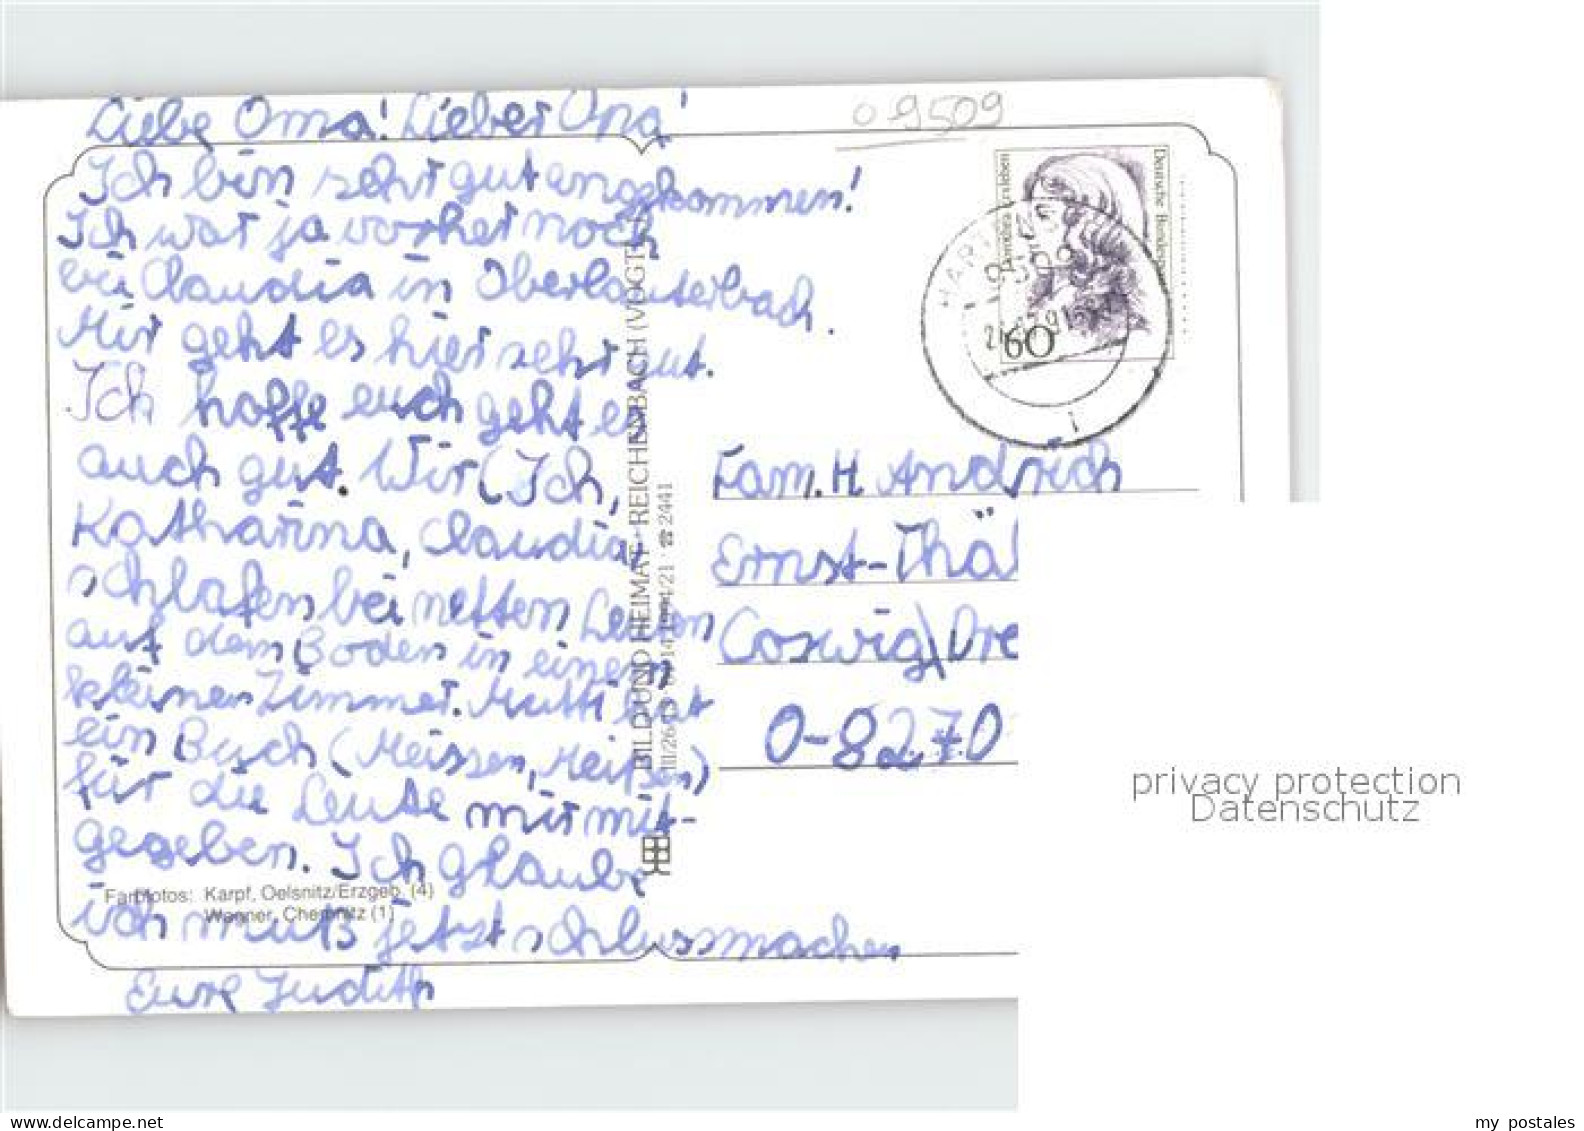 Liebe Oma! Lieber Opa!
Ich bin sehr gut angekommen!
Ich war ja vorher noch
bei Claudia in Oberlauterbach.
Mir geht es hier sehr gut.
Ich hoffe euch geht es
auch gut. Wir (Ich,
Katharina, Claudia)
schlafen bei netten Leuten
auf dem Boden in einem
kleinen Zimmer. Mutti hat
ein Buch (Meissen, Meißen)
für die Leute mir mit-
gegeben. Ich glaube
ich muß jetzt schlussmachen
Eure Judith
Farbfotos: Karpf, Oelsnitz/Erzgeb. (4)
Wenner, Chemnitz (1)
BILD UND HEIMAT · REICHENBACH (VOGTL.)
☎ 2441
09509
Deutsche Bundespost
Dorothea Erxleben
60
Fam. H. Andrich
Ernst-Thäl
Coswig\Dre
O-8270
privacy protection
Datenschutz
my postales